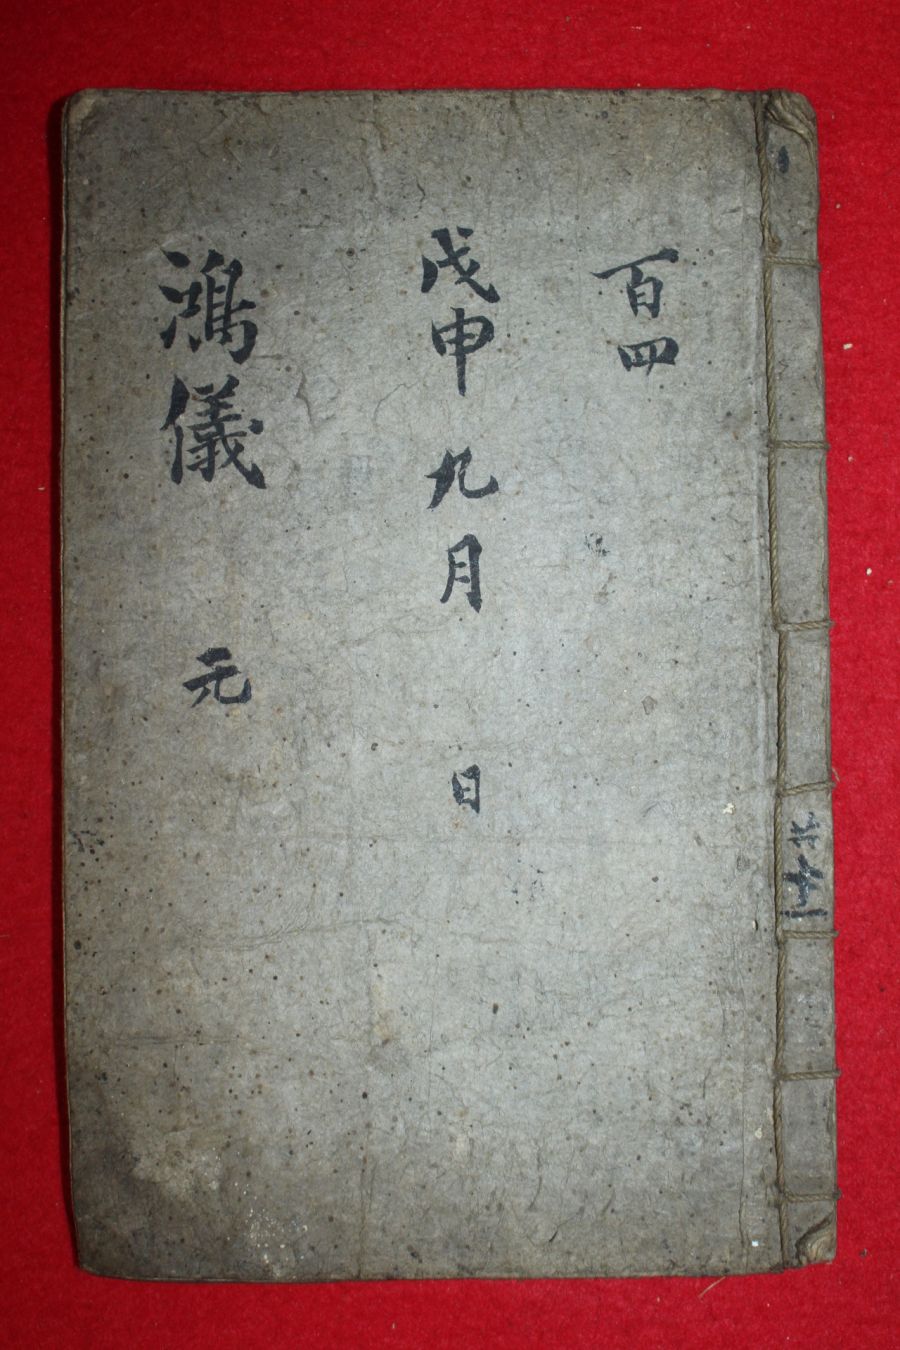 百四
戊申九月 日
鴻儀 元
共十二